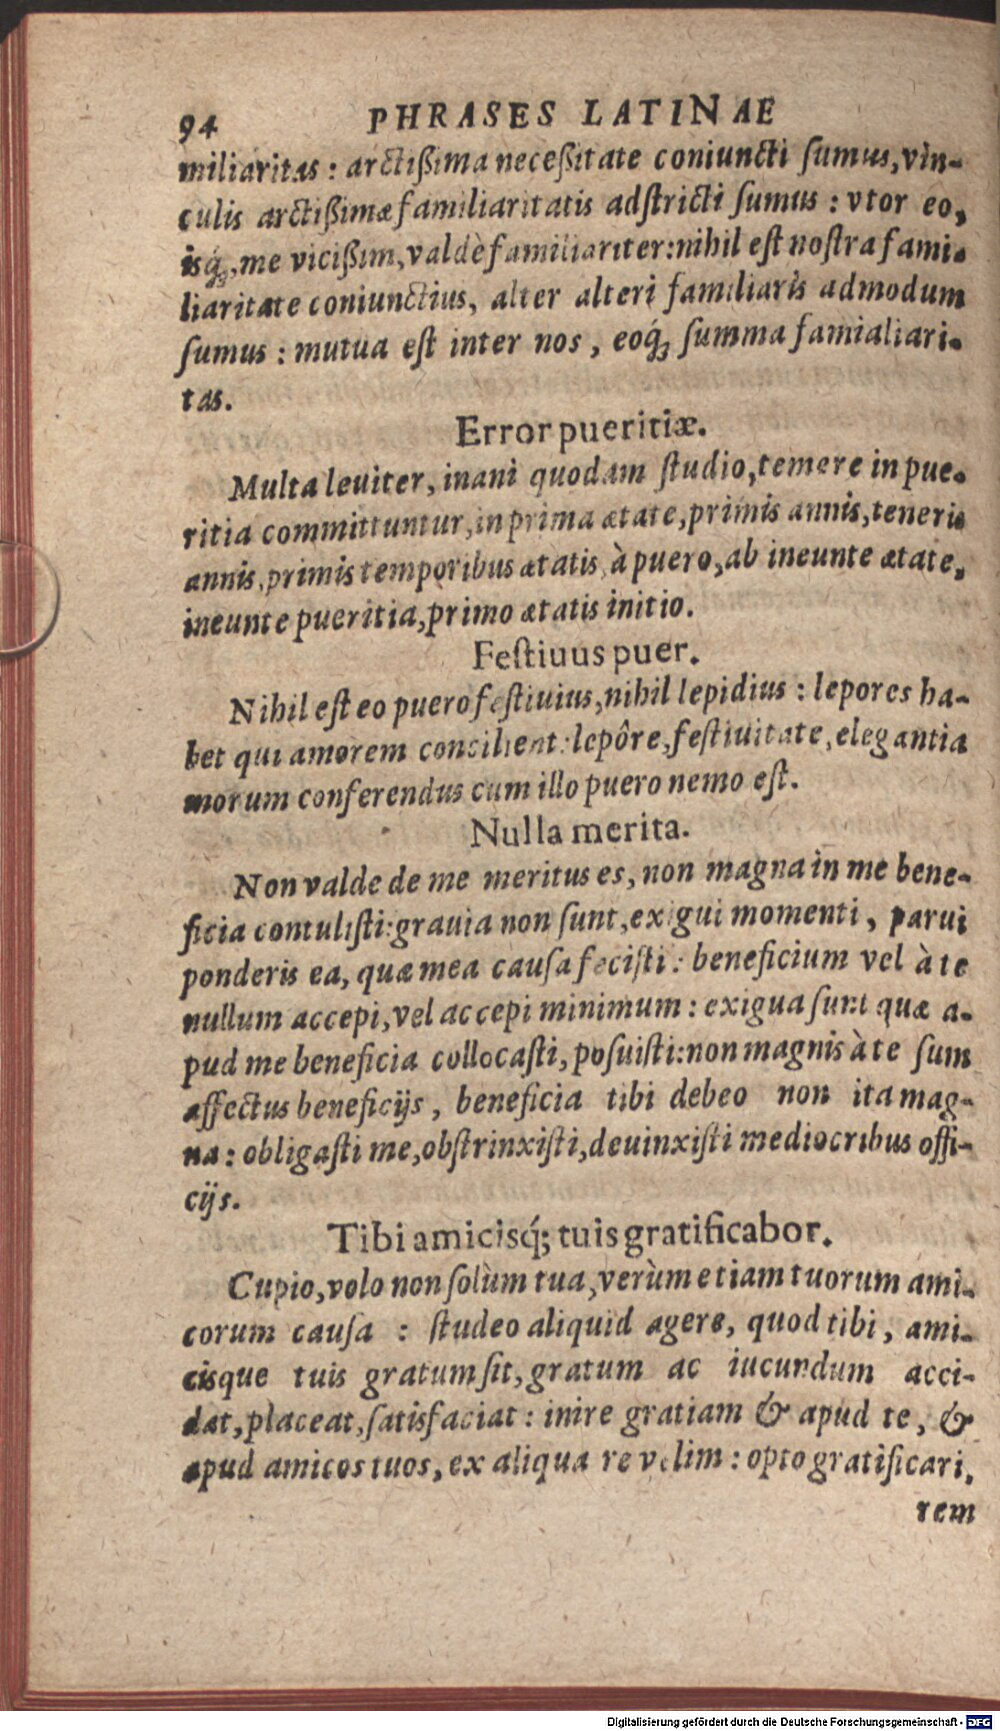 94 PHRASES LATINAE
miliaritas : arctißima neceßitate coniuncti ſumus, vin-
culis arctißimæ familiaritatis adſtricti ſumus : vtor eo,
isq́;, me vicißim, valdè familiariter: nihil eſt noſtra fami-
liaritate coniunctius, alter alteri familiaris admodum
ſumus : mutua eſt inter nos, eoq́; ſumma famialiari-
tas.
Error pueritiæ.
Multa leuiter, inani quodam ſtudio, temere in pue-
ritia committuntur, in prima ætate, primis annis, teneris
annis, primis temporibus ætatis, à puero, ab ineunte ætate,
ineunte pueritia, primo ætatis initio.
Feſtiuus puer.
Nihil eſt eo puero feſtiuius, nihil lepidius : lepores ha-
bet qui amorem concilient: lepôre, feſtiuitate, elegantia
morum conferendus cum illo puero nemo eſt.
Nulla merita.
Non valde de me meritus es, non magna in me bene-
ficia contuliſti: grauia non ſunt, exigui momenti, parui
ponderis ea, quæ mea cauſa feciſti : beneficium vel à te
nullum accepi, vel accepi minimum : exigua ſunt quæ a-
pud me beneficia collocaſti, poſuiſti: non magnis à te ſum
affectus beneficijs, beneficia tibi debeo non ita mag-
na : obligaſti me, obſtrinxiſti, deuinxiſti mediocribus offi-
cijs.
Tibi amicisq́; tuis gratificabor.
Cupio, volo non ſolùm tua, verùm etiam tuorum ami-
corum cauſa : ſtudeo aliquid agere, quod tibi, ami-
cisque tuis gratum ſit, gratum ac iucundum acci-
dat, placeat, ſatisfaciat : inire gratiam & apud te, &
apud amicos tuos, ex aliqua re velim : opto gratificari,
rem
Digitalisierung gefördert durch die Deutsche Forschungsgemeinschaft - DFG